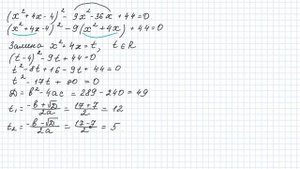 (x²+4x-4)² - 9x²-36x +44=0
(x²+4x-4)² -9(x²+4x)+44=0
Замена x²+4x=t, t∈R
(t-4)²-9t+44=0
t²-8t+16-9t+44=0
t²-17t+60=0
D=b²-4ac=289-240=49
t₁=(-b+√D)/2a=(17+7)/2=12
t₂=(-b-√D)/2a=(17-7)/2=5